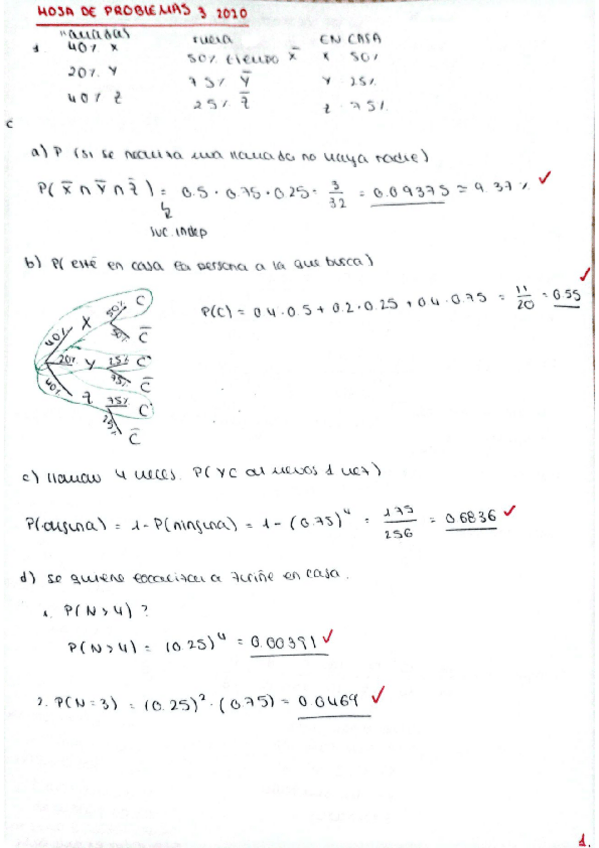 HOJA DE PROBLEMAS 3 2020
llamadas fuera EN CASA
1. 40% X 50% tiempo X̄ X 50%
20% Y 75% Ȳ Y 25%
40% Z 25% Z̄ Z 75%
c
a) P (si se realiza una llamada no haya nadie)
P(X̄ ∩ Ȳ ∩ Z̄) = 0.5 · 0.75 · 0.25 · 3/32 = 0.09375 ≈ 9.37% ✓
suc. indep
b) P( esté en casa la persona a la que busca)
P(C) = 0.4 · 0.5 + 0.2 · 0.25 + 0.4 · 0.75 = 11/20 = 0.55 ✓
40% X 50% C
50% C̄
20% Y 25% C
75% C̄
40% Z 75% C
25% C̄
c) llaman 4 veces. P(YC al menos 1 vez)
P(alguna) = 1 - P(ninguna) = 1 - (0.75)⁴ = 175/256 = 0.6836 ✓
d) se quiere localizar a en casa.
1. P(N > 4) ?
P(N > 4) = (0.25)⁴ = 0.00391 ✓
2. P(N = 3) = (0.25)² · (0.75) = 0.0469 ✓
1.